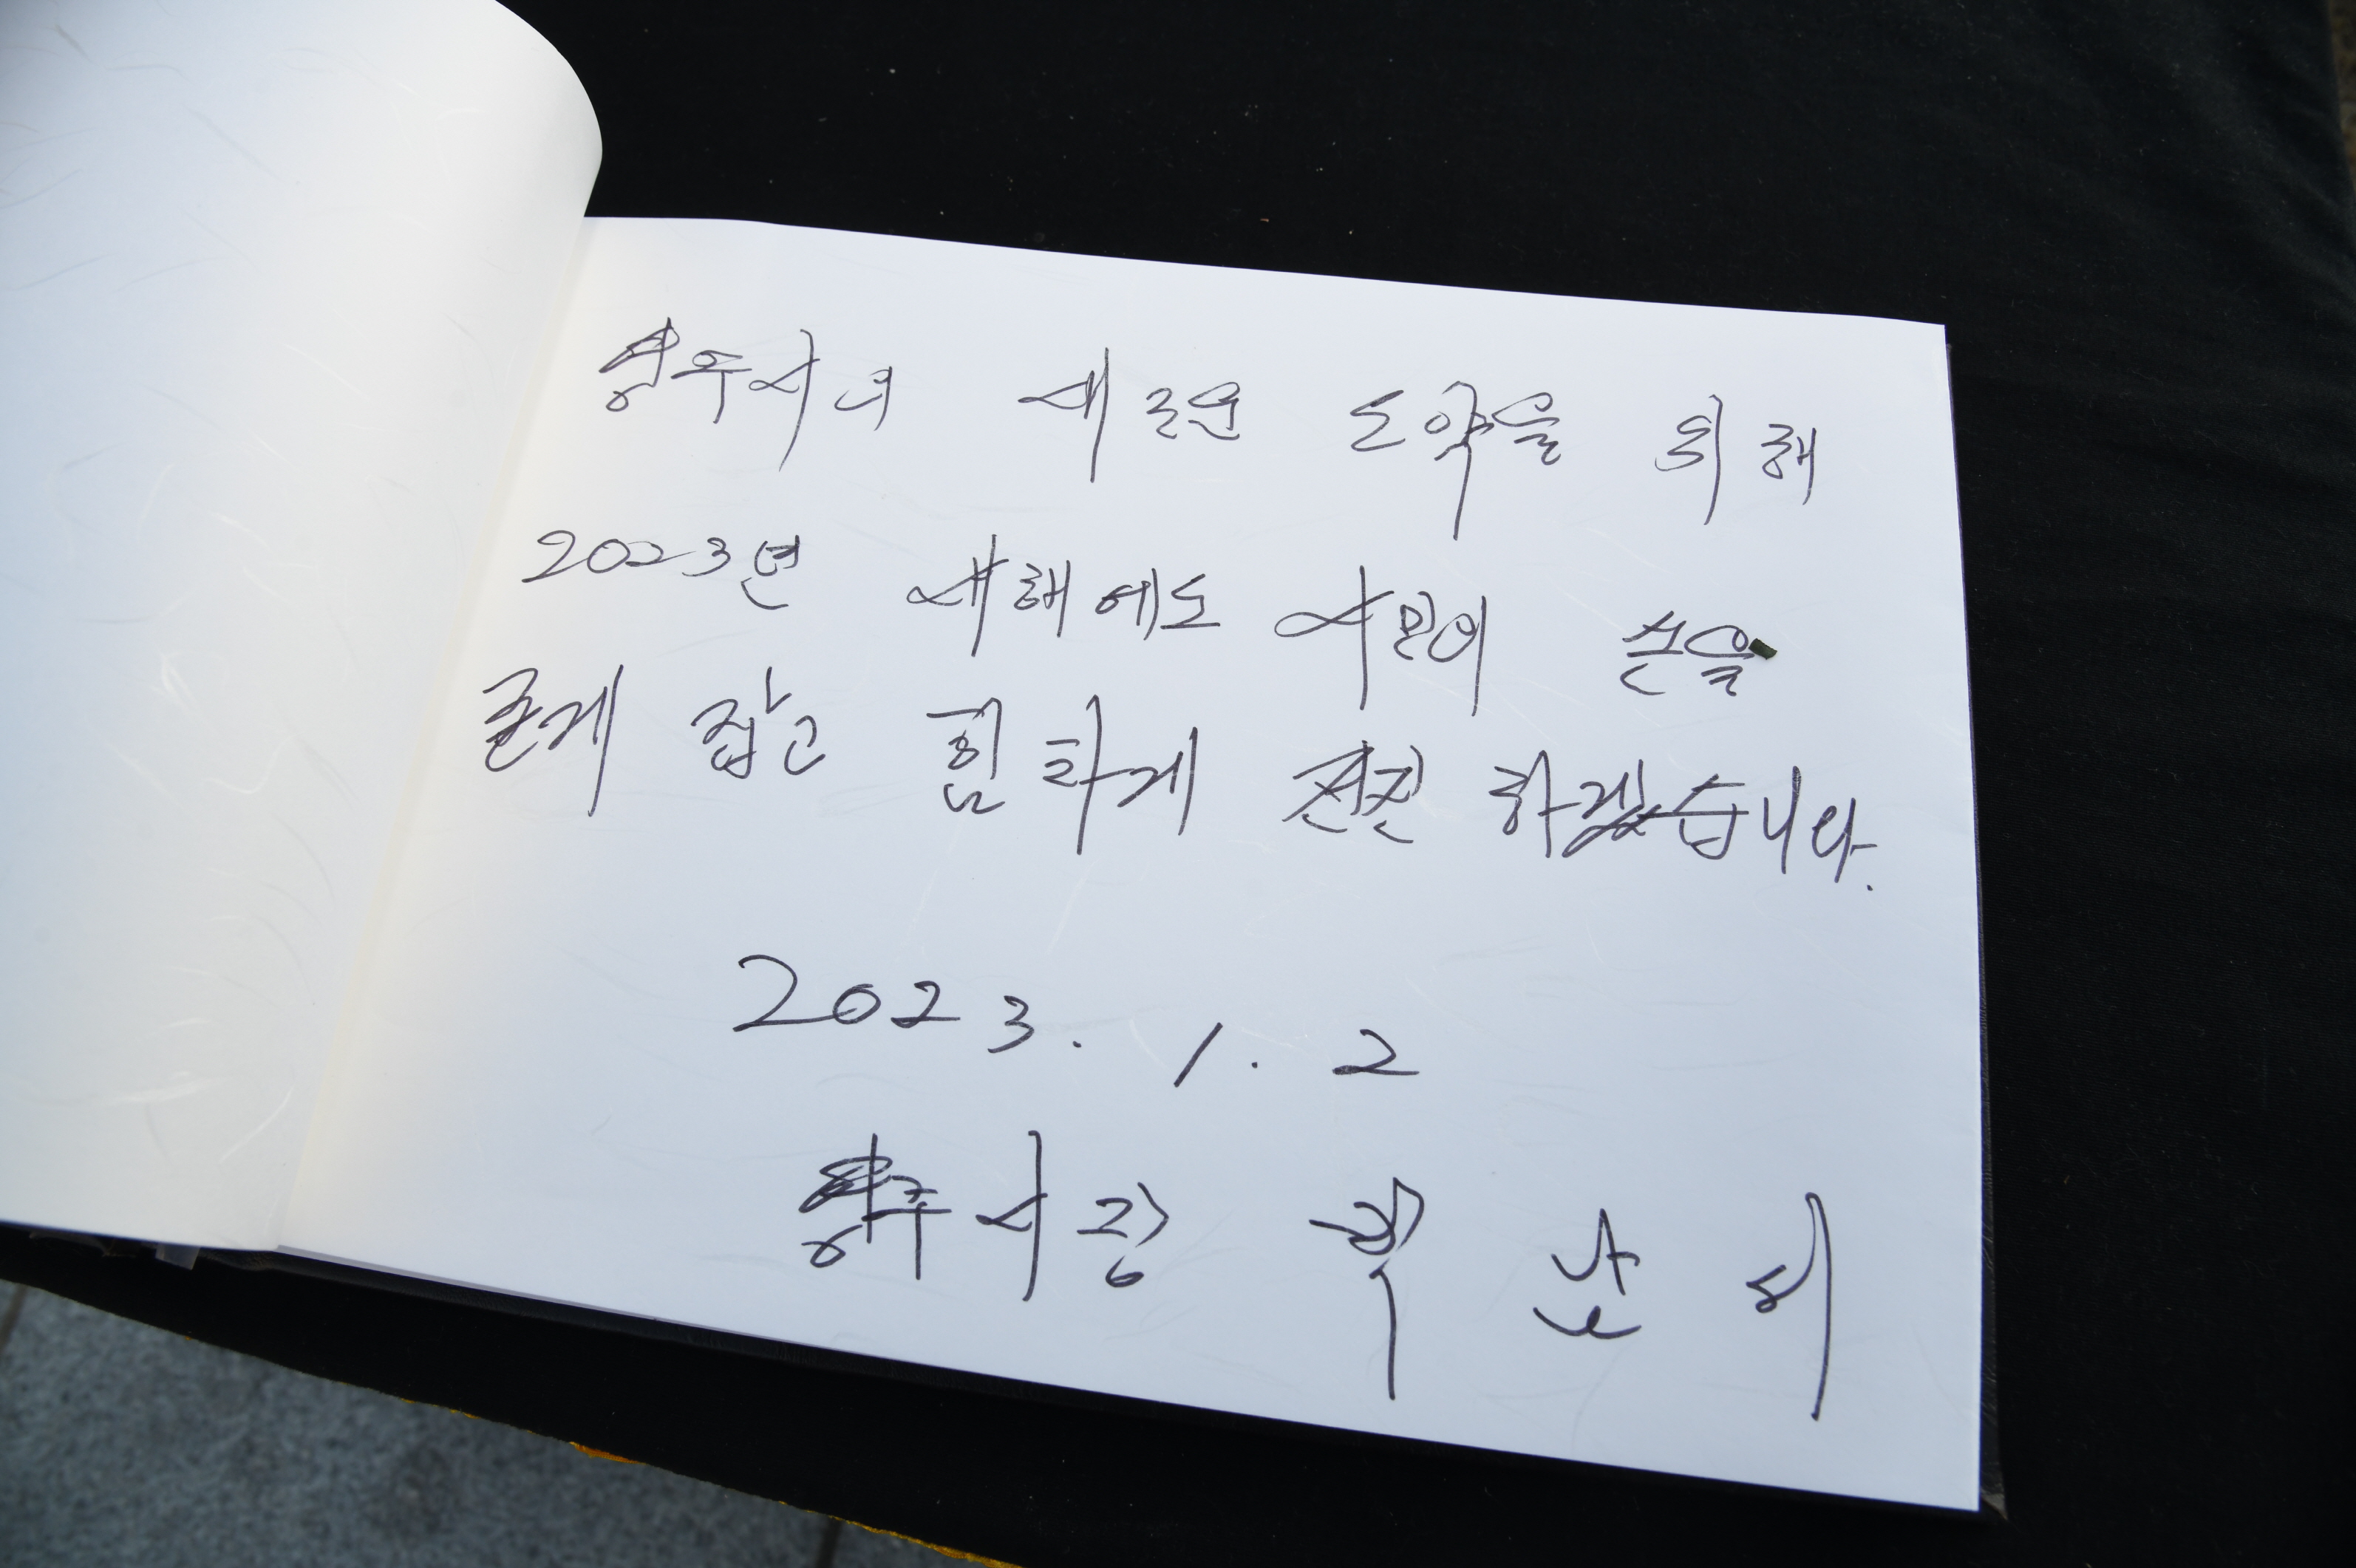 영주시의 새로운 도약을 위해
2023년 새해에도 시민의 손을
굳게 잡고 힘차게 전진 하겠습니다.
2023. 1. 2
영주시장 박남서